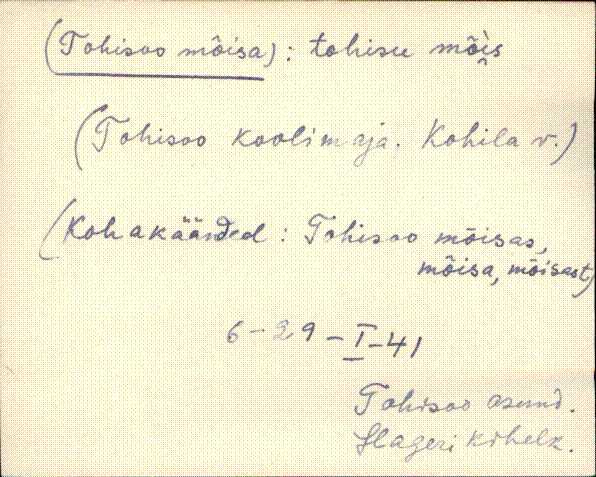 (Tohisoo mõisa): tohisu mõìs
(Tohisoo koolimaja. Kohila v.)
(Kohakäänded: Tohisoo mõisas,
mõisa, mõisast)
6-29-I-41
Tohisoo asund.
Hageri kihelk.